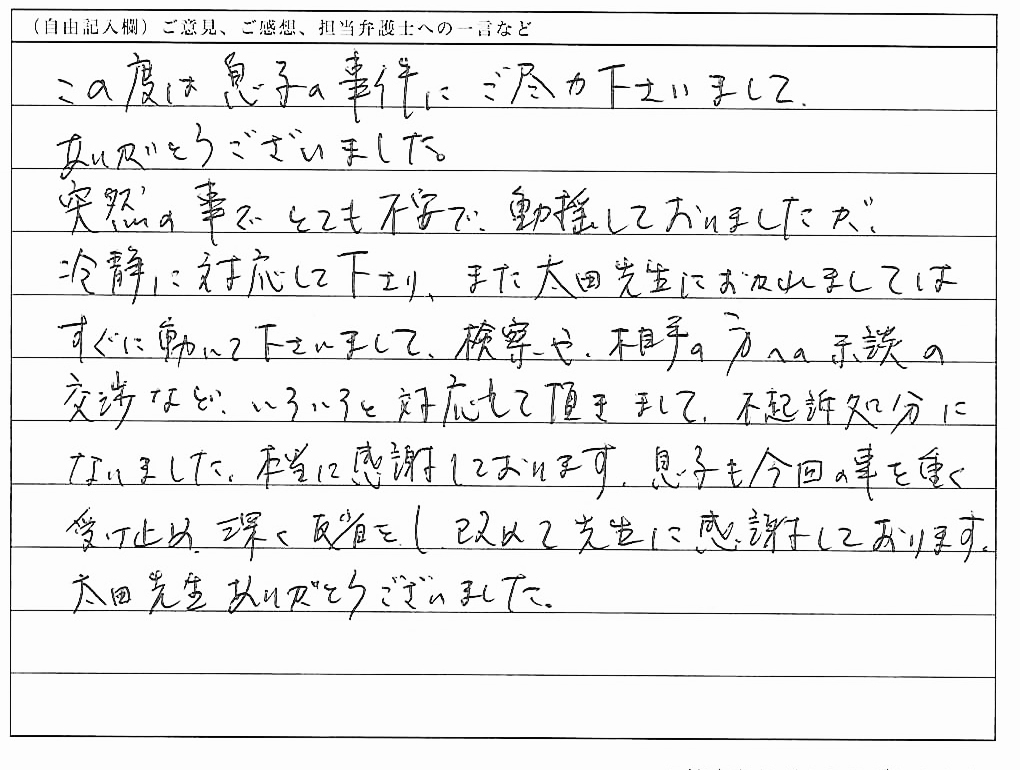 （自由記入欄）ご意見、ご感想、担当弁護士への一言など
この度は息子の事件にご尽力下さいまして、
ありがとうございました。
突然の事でとても不安で、動揺しておりましたが、
冷静に対応して下さり、また太田先生におかれましては
すぐに動いて下さいまして、検察や、相手の方への示談の
交渉など、いろいろと対応して頂きまして、不起訴処分に
なりました。本当に感謝しております。息子も今回の事を重く
受け止め、深く反省をし、改めて先生に感謝しております。
太田先生ありがとうございました。